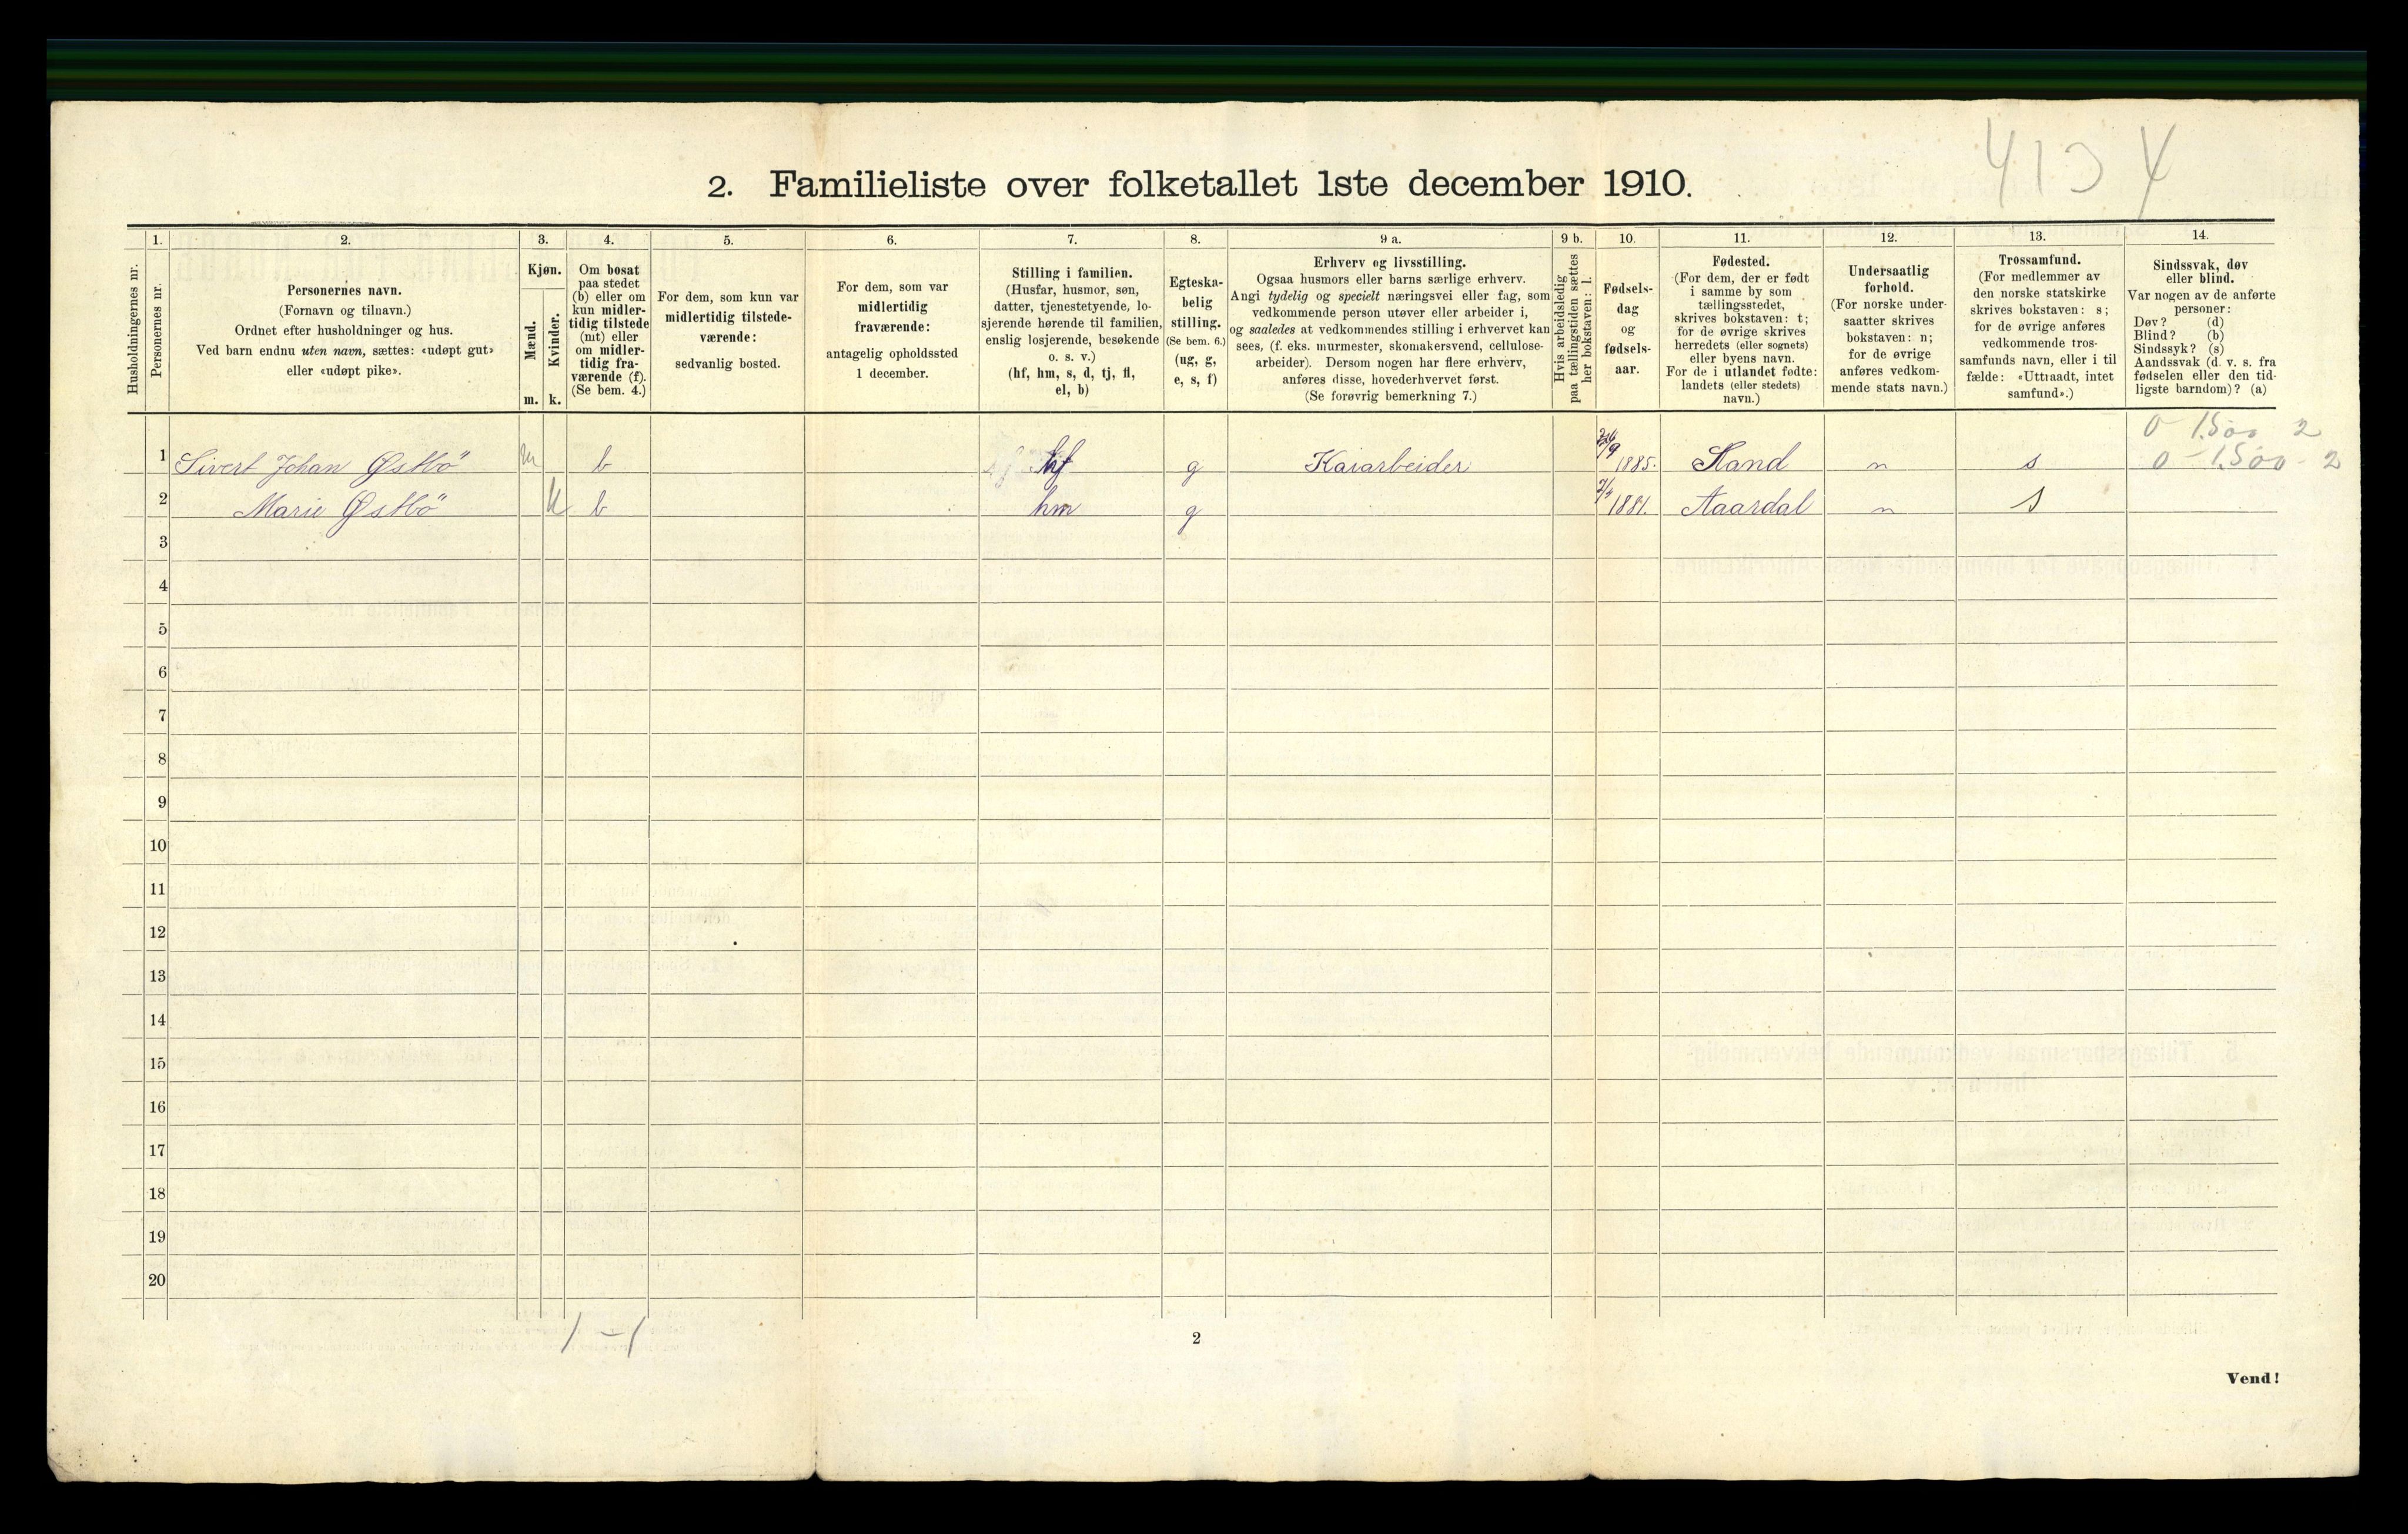 4134
2. Familieliste over folketallet 1ste december 1910.
Husholdningernes nr.
1.
Personernes nr.
2.
Personernes navn.
(Fornavn og tilnavn.)
Ordnet efter husholdninger og hus.
Ved barn endnu uten navn, sættes: «udøpt gut»
eller «udøpt pike».
3.
Kjøn.
Mænd.
Kvinder.
m. k.
4.
Om bosat
paa stedet
(b) eller om
kun midler-
tidig tilstede
(mt) eller
om midler-
tidig fra-
værende (f).
(Se bem. 4.)
5.
For dem, som kun var
midlertidig tilstede-
værende:
sedvanlig bosted.
6.
For dem, som var
midlertidig
fraværende:
antagelig opholdssted
1 december.
7.
Stilling i familien.
(Husfar, husmor, søn,
datter, tjenestetyende, lo-
sjerende hørende til familien,
enslig losjerende, besøkende
o. s. v.)
(hf, hm, s, d, tj, fl,
el, b)
8.
Egteska-
belig
stilling.
(Se bem. 6.)
(ug, g,
e, s, f)
9 a.
Erhverv og livsstilling.
Ogsaa husmors eller barns særlige erhverv.
Angi tydelig og specielt næringsvei eller fag, som
vedkommende person utøver eller arbeider i,
og saaledes at vedkommendes stilling i erhvervet kan
sees, (f. eks. murmester, skomakersvend, cellulose-
arbeider). Dersom nogen har flere erhverv,
anføres disse, hovederhvervet først.
(Se forøvrig bemerkning 7.)
9 b.
Hvis arbeidsledig
paa tællingstiden sættes
her bokstaven: l.
10.
Fødsels-
dag
og
fødsels-
aar.
11.
Fødested.
(For dem, der er født
i samme by som
tællingsstedet,
skrives bokstaven: t;
for de øvrige skrives
herredets (eller sognets)
eller byens navn.
For de i utlandet fødte:
landets (eller stedets)
navn.)
12.
Undersaatlig
forhold.
(For norske under-
saatter skrives
bokstaven: n;
for de øvrige
anføres vedkom-
mende stats navn.)
13.
Trossamfund.
(For medlemmer av
den norske statskirke
skrives bokstaven: s;
for de øvrige anføres
vedkommende tros-
samfunds navn, eller i til
fælde: «Uttraadt, intet
samfund».)
14.
Sindssvak, døv
eller blind.
Var nogen av de anførte
personer:
Døv? (d)
Blind? (b)
Sindssyk? (s)
Aandssvak (d. v. s. fra
fødselen eller den tid-
ligste barndom)? (a)
0 - 1.500 2
1 Sivert Johan Østbö m b hf g Kaiarbeider 1885. Sand n s 0 - 1.500 - 2
2 Marie Østbö k b hm g 1881. Aardal n s
3
4
5
6
7
8
9
10
11
12
13
14
15
16
17
18
19
20
1 - 1
2
Vend!